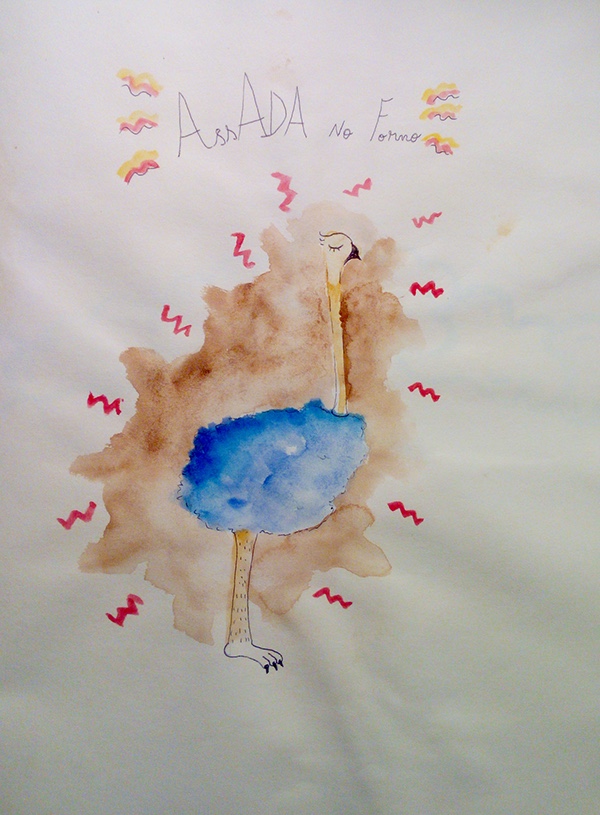 AssADA No Forno